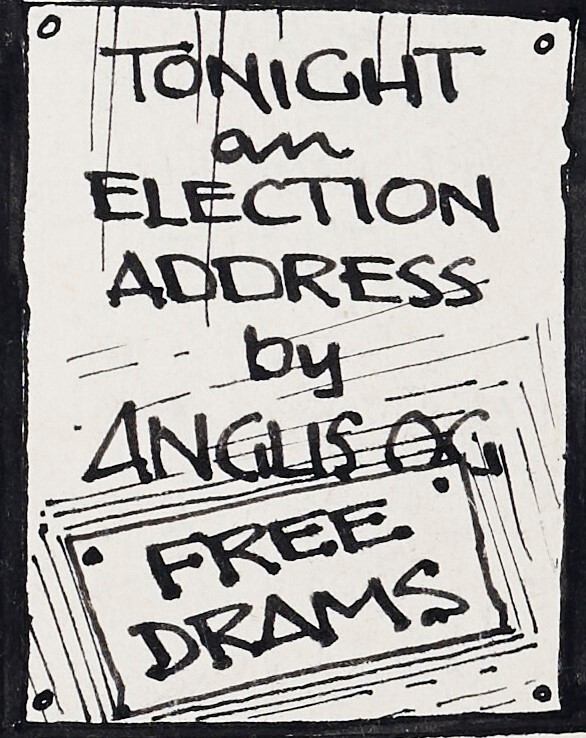 TONIGHT
an
ELECTION
ADDRESS
by
ANGUS OG
FREE
DRAMS